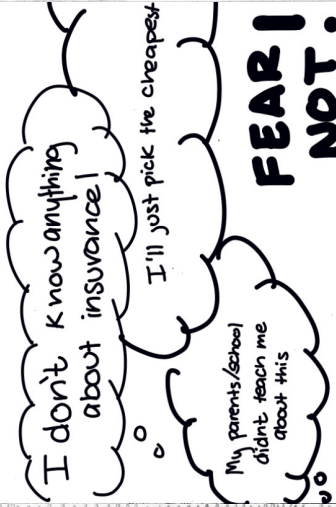 I don't know anything
about insurance!
I'll just pick the cheapest
My parents/school
didnt teach me
about this
FEAR
NOT!